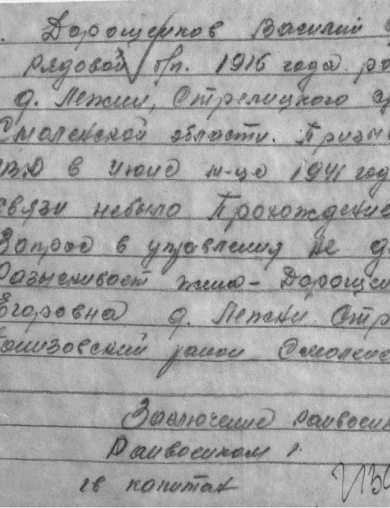 . Дорощенков Василий
рядовой б/п. 1916 года ро
д. Лежки, Стрелицкого
Смоленской области. Призы
ИВО в июне м-це 1941 год
связи небыло Прохождение
Запрос в управления не д
Разыскивает жина - Дорощен
Егоровна д. Лежки Стр
район Смоленс
Заключение райвоенк
Райвоенком
г в капитан